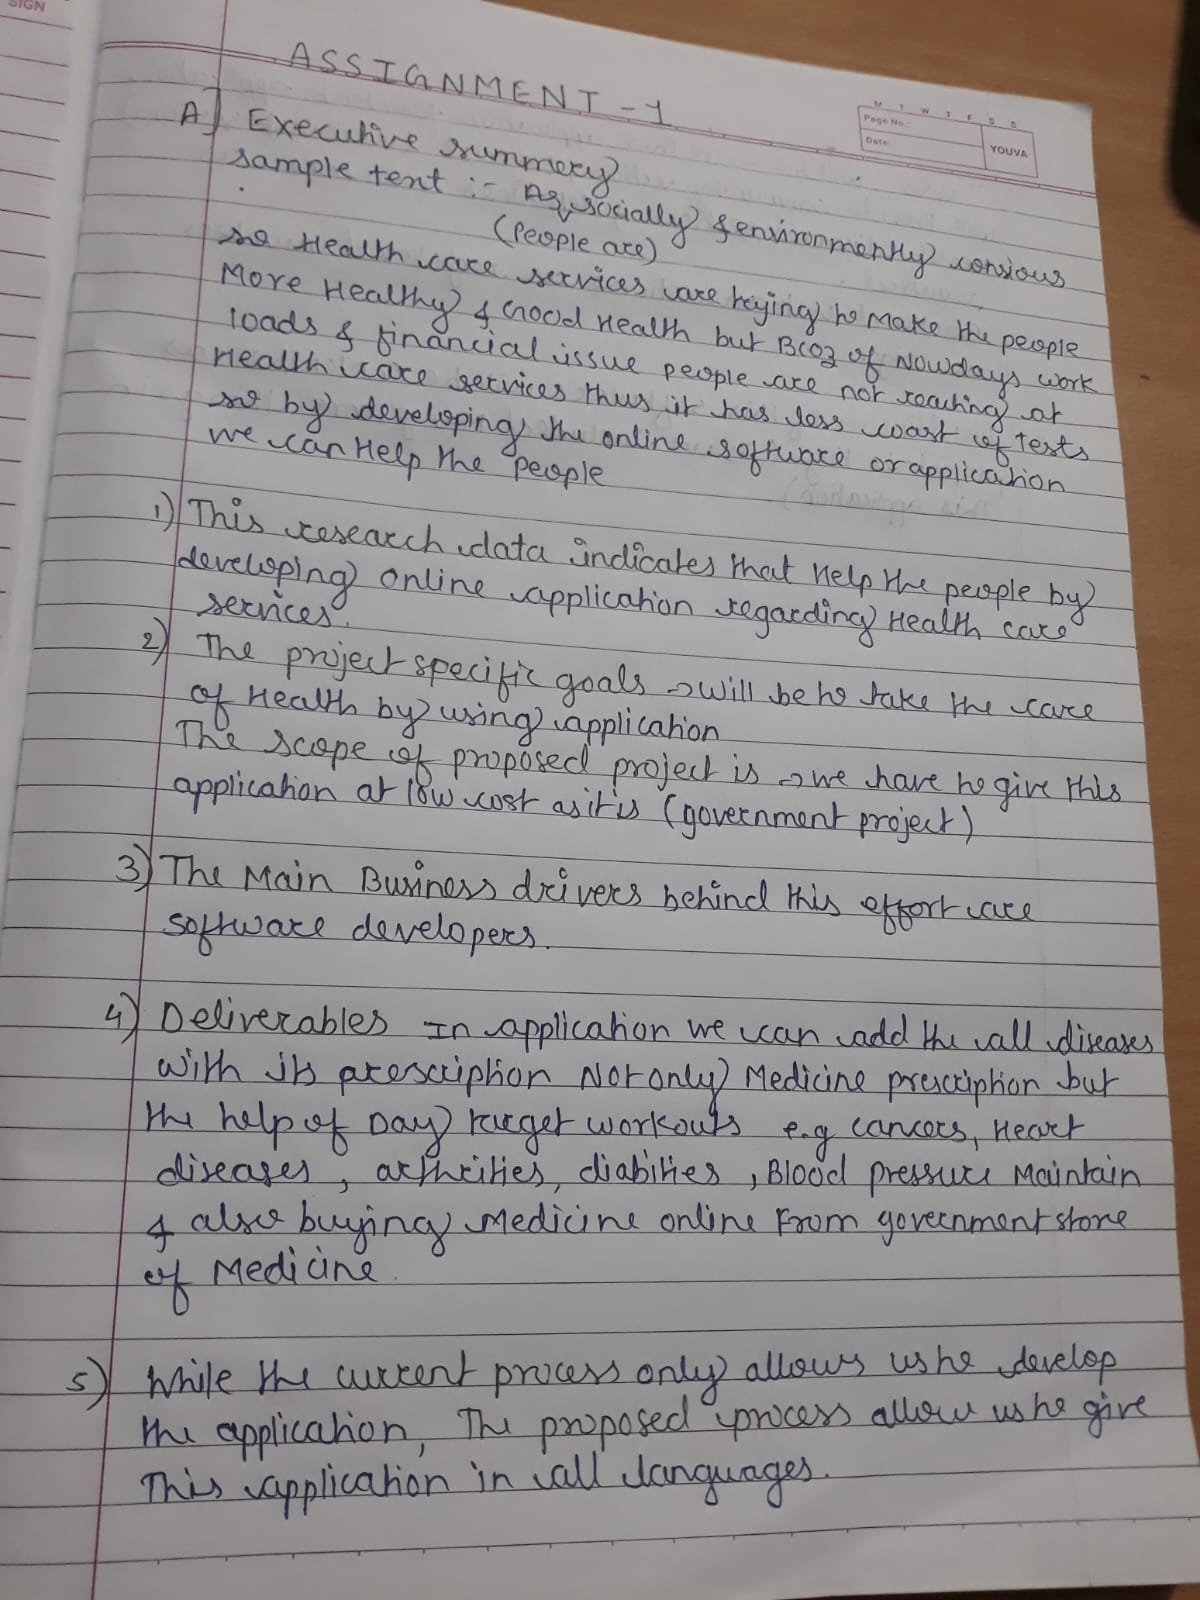 SIGN
ASSIGNMENT - 1
M T W T F S S
Page No.:
Date:
YOUVA
A] Executive summery
sample text :- As socially & environmently consious
(people are)
so Health care services are trying to Make the people
More Healthy & Good Health but Bcoz of Nowdays work
loads & financial issue people are not reaching at
Health care services thus it has less coast of Tests
so by developing the online software or application
we can Help the people
1) This research data indicates that Help the people by
developing online application regarding Health care
services.
2) The project specific goals → will be to take the care
of Health by using application
The scope of proposed project is → we have to give this
application at low cost as it is (government project)
3) The Main Business drivers behind this effort are
software developers.
4) Deliverables In application we can add the all diseases
with its prescription Not only Medicine prescription but
the help of Day target workouts e.g cancers, Heart
diseases, arthrities, diabities, Blood pressure Maintain
& also buying Medicine online From government store
of Medicine.
5) While the current process only allows us to develop
the application, The proposed process allow us to give
This application in all languages.